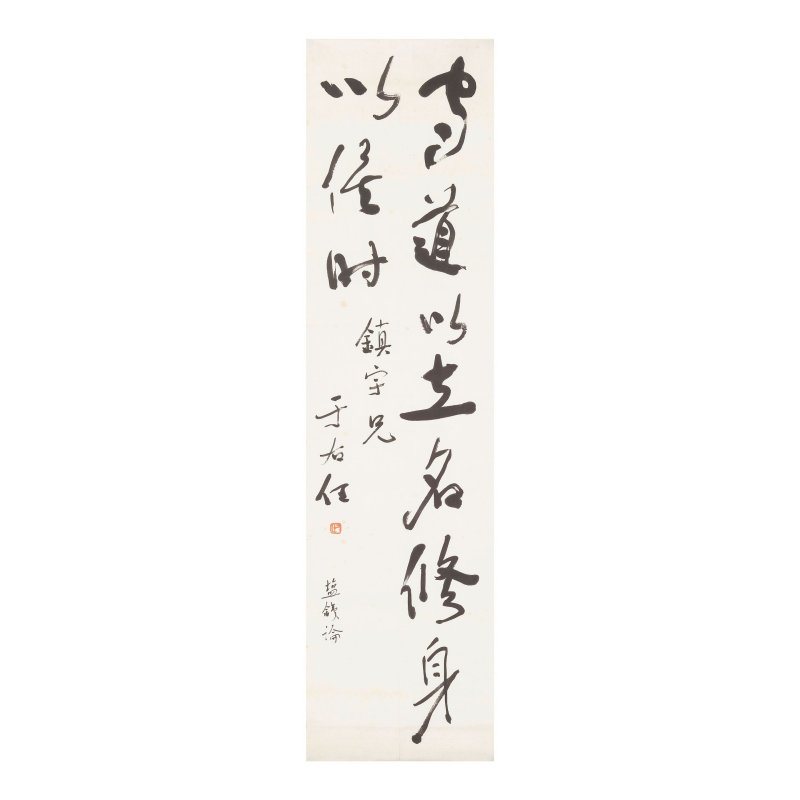 守道以立名修身
以俟时
鎮宇兄
于右任
盐鉄論